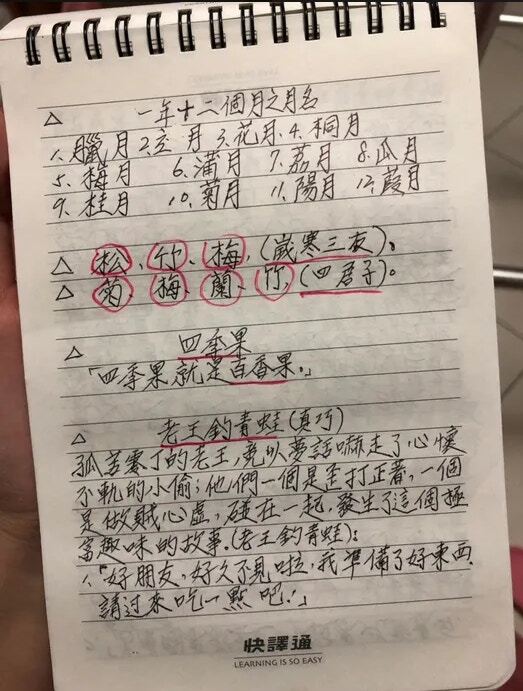 △ 一年十二個月之月名
1.臘月 2.玄月 3.花月 4.桐月
5.梅月 6.蒲月 7.荔月 8.瓜月
9.桂月 10.菊月 11.陽月 12.葭月
△ 松、竹、梅,(歲寒三友);
△ 菊、梅、蘭、竹,(四君子)。
△ 四季果
「四季果就是百香果。」
△ 老王釣青蛙(真巧)
孤苦零丁的老王,竟以夢話嚇走了心懷
不軌的小偷;他們一個是歪打正著,一個
是做賊心虛,碰在一起,發生了這個極
富趣味的故事.(老王釣青蛙):
1.「好朋友,好久不見啦,我準備了好東西
請过來吃一點吧!」
快譯通
LEARNING IS SO EASY